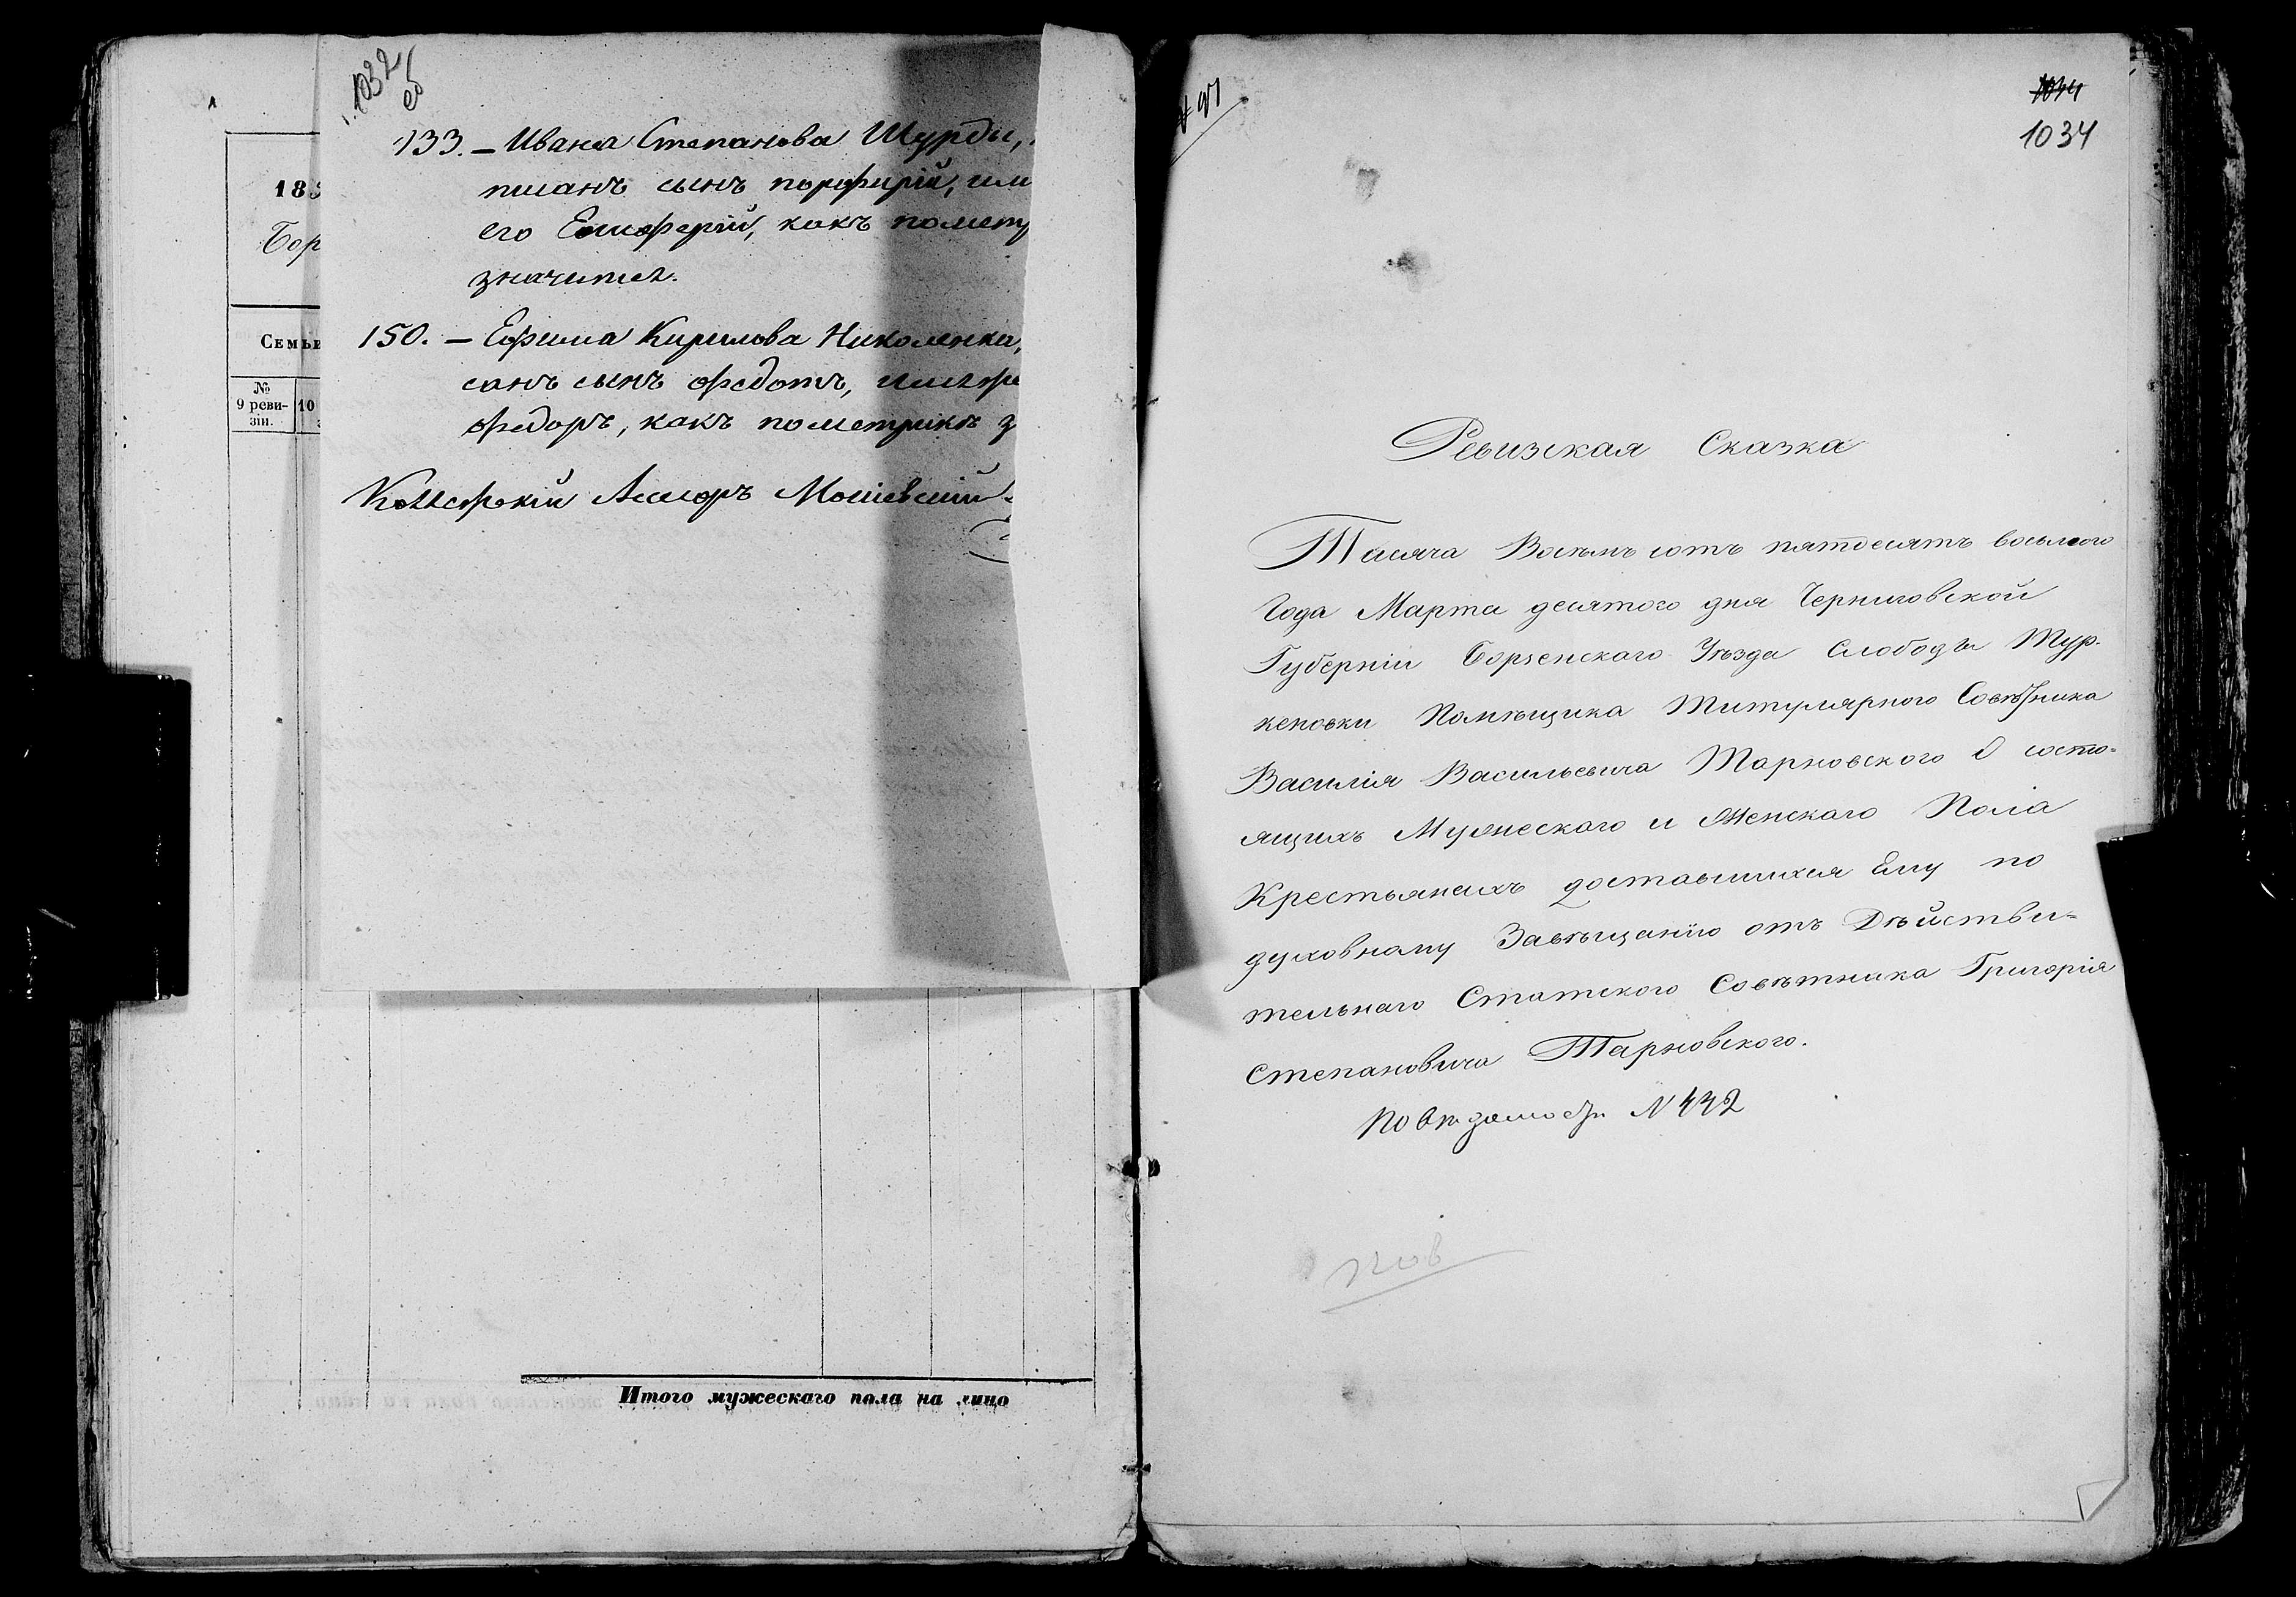 1032
об
133. — Ивана Степанова Шурды,
писанъ сынъ порфирій, им
его Елиоферій, какъ помет
значится.
150. — Ефима Кирилова Николенка,
санъ сынъ Федотъ,
Федоръ, какъ пометрикѣ з
183
Бор
Семьи
№
9 реви-
зіи.
10
Итого мужескаго пола на лицо
1034
1034
Ревизская Сказка
Тысяча Восемь сотъ пятдесятъ восьмого
Года Марта десятого дня Черниговской
Губерніи Борзенскаго Уѣзда Слободы Тур-
кеновки Помѣщика Титулярного Совѣтника
Василія Васильевича Тарновского О состо-
ящихъ Мужескаго и Женскаго Пола
Крестьянахъ доставшихся Ему по
духовному Завѣщанію отъ Дѣйстви-
тельнаго Статского Совѣтника Григорія
Степановича Тарновского.
По вѣдомости N 442